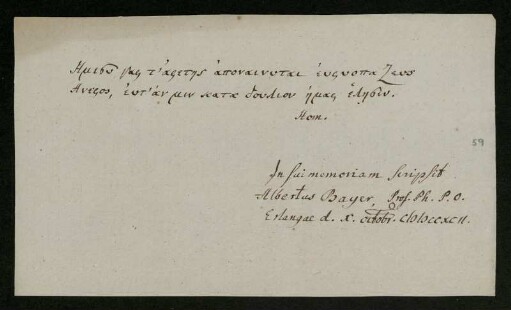 Ημισυ γας τ'αρετης αποναινυται ευρυοπα Ζευς
Ανερος, ευτ'αν μιν κατα δουλιον ημας ελησιν.
Hom.
59
In sui memoriam scripsit
Albertus Bayer, Prof. Ph. P. O.
Erlangae d. X. Octobr. CIƆIƆCCXCII.